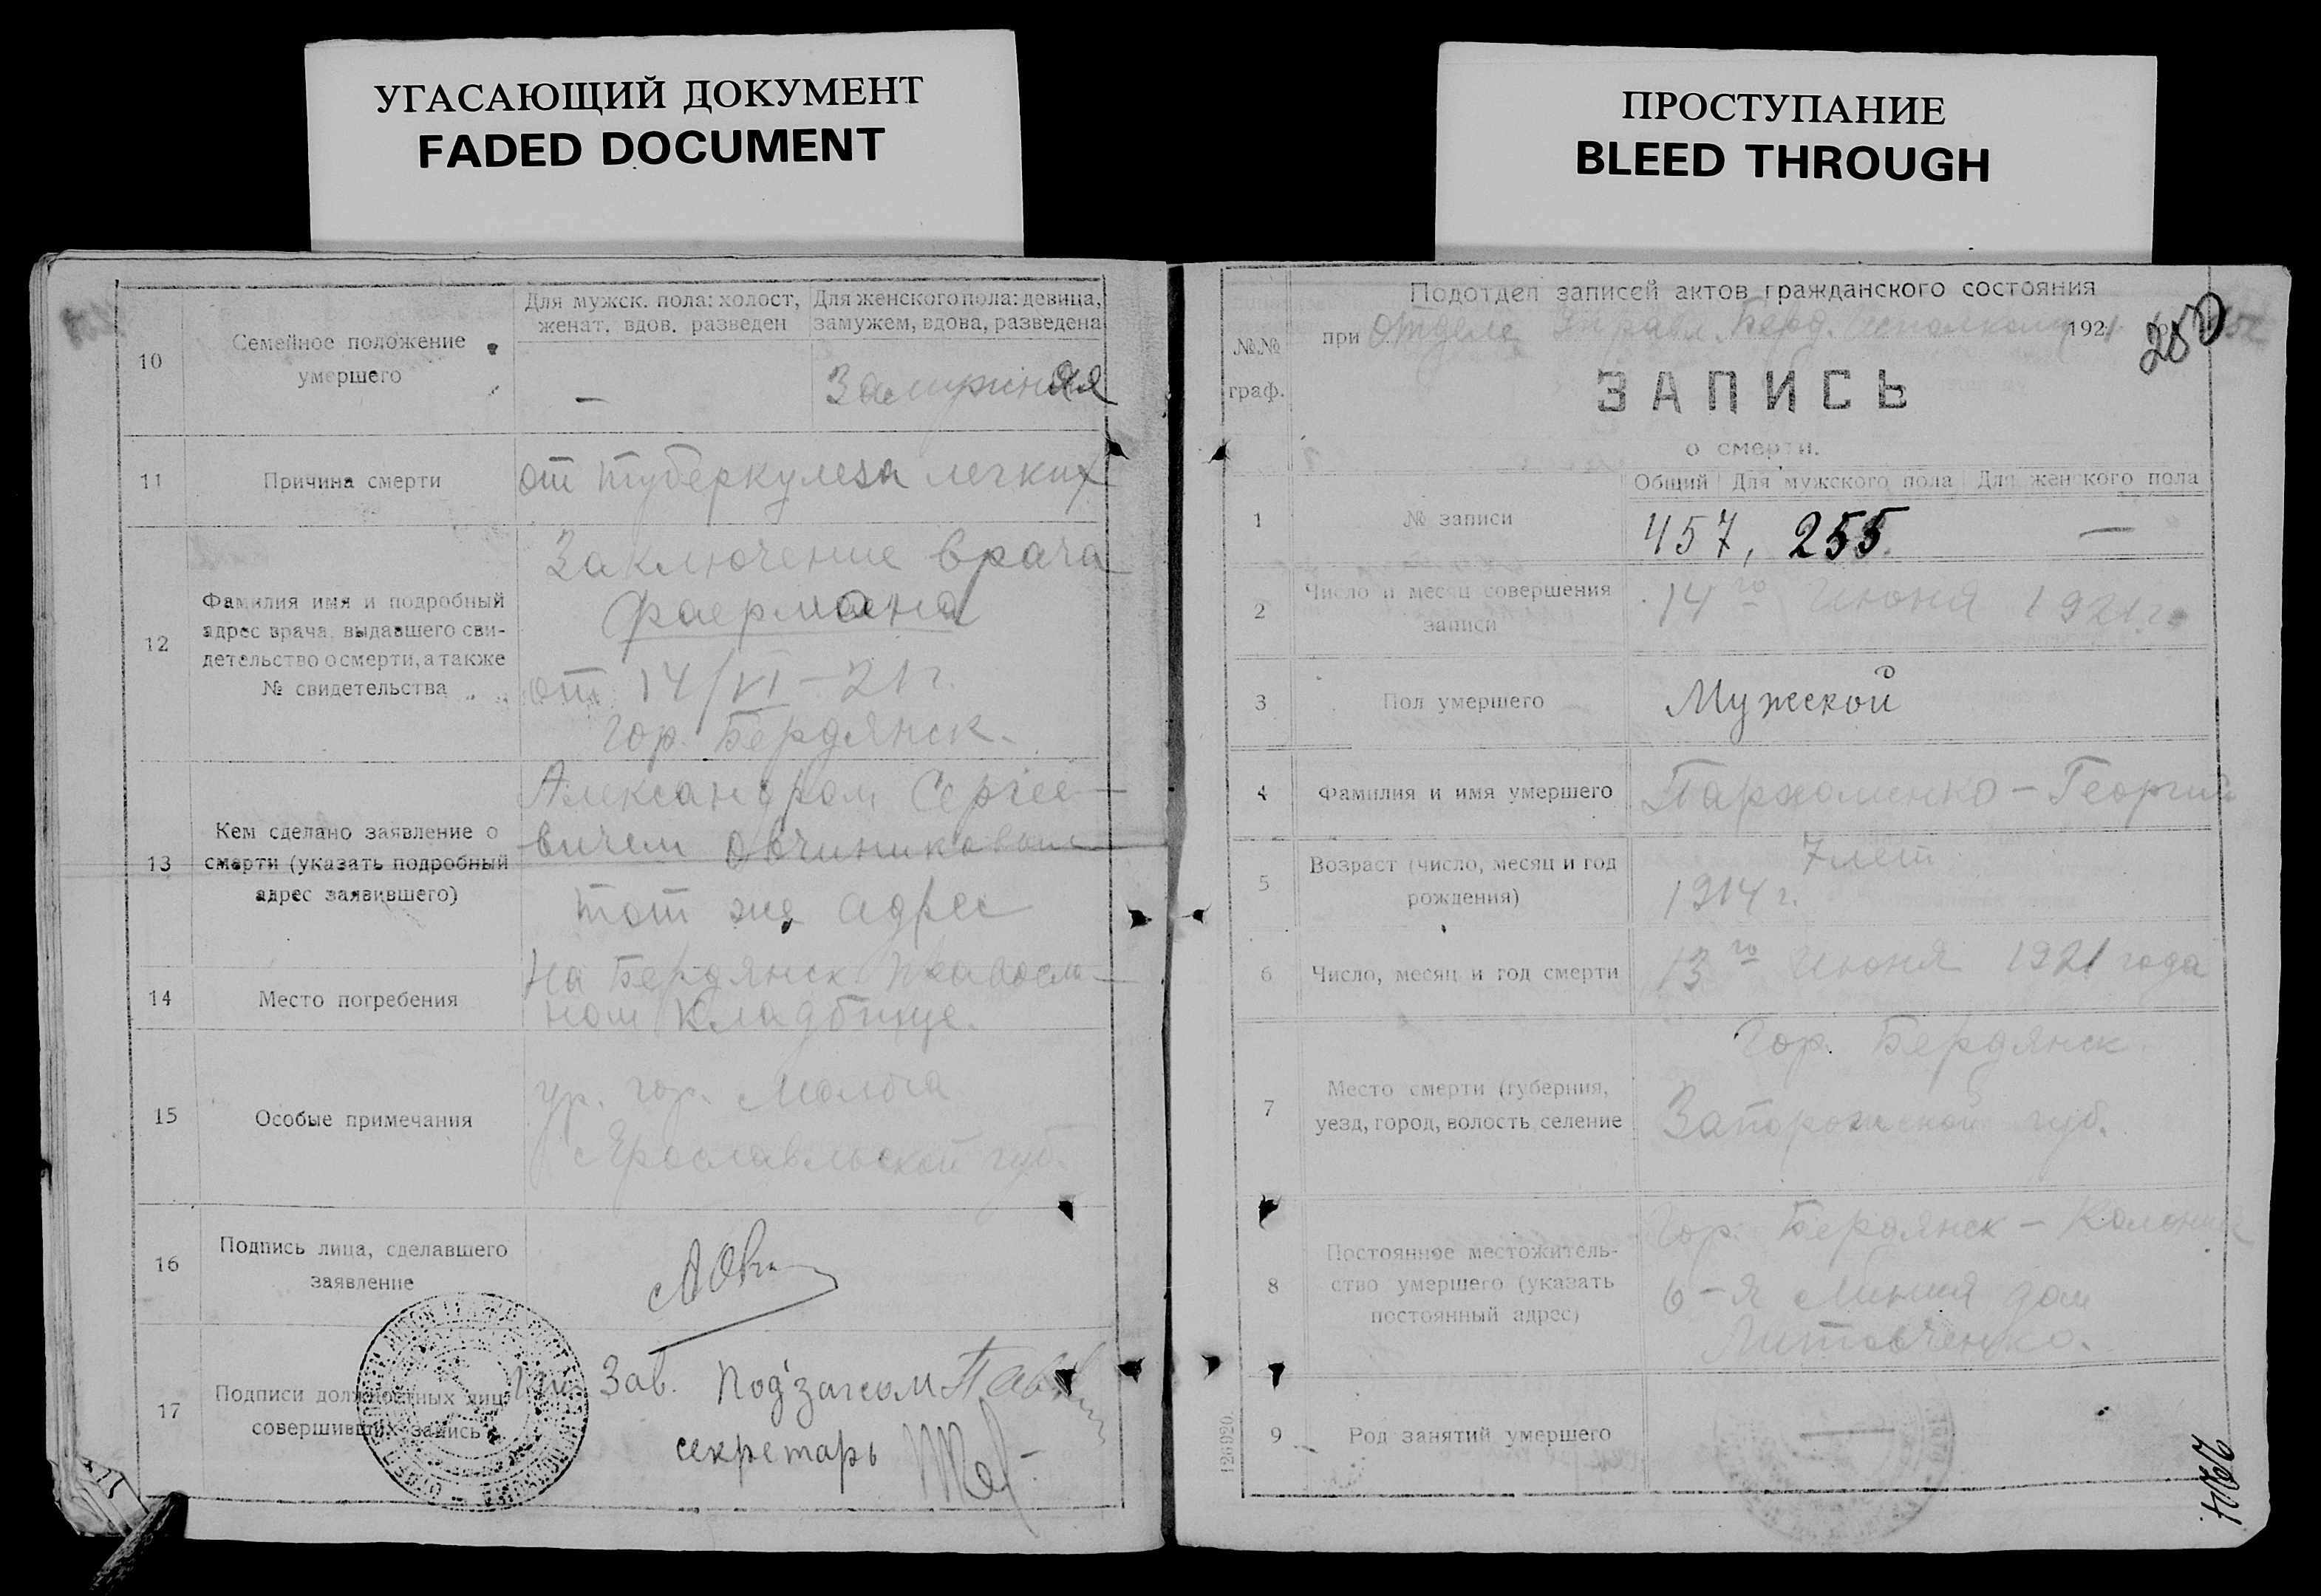 УГАСАЮЩИЙ ДОКУМЕНТ
FADED DOCUMENT
10
Семейное положение умершего
Для мужск. пола: холост, женат, вдов, разведен
Для женского пола: девица, замужем, вдова, разведена
—
Замужняя
11
Причина смерти
от туберкулеза легких
12
Фамилия имя и подробный
адрес врача, выдавшего сви-
детельство о смерти, а также
№ свидетельства
Заключение врача
Фаермана
от 14/VI – 21 г.
гор. Бердянск.
13
Кем сделано заявление о
смерти (указать подробный
адрес заявившего)
Александром Сергее-
вичем Овчиниковым
тот же адрес
14
Место погребения
на Бердянск. Правосла-
ном кладбище.
15
Особые примечания
ур. гор. Молога
Ярославльской губ.
16
Подпись лица, сделавшего
заявление
17
Подписи должностных лиц
совершивших запись
Зав. Под'загсом
секретарь
ПРОСТУПАНИЕ
BLEED THROUGH
Подотдел записей актов гражданского состояния
при Отделе Управл. Берд. Исполкома 1921
280
№№
граф.
ЗАПИСЬ
о смерти.
Общий
Для мужского пола
Для женского пола
1
№ записи
457, 255. —
2
Число и месяц совершения
записи
14го июня 1921 г.
3
Пол умершего
Мужской
4
Фамилия и имя умершего
Пархоменко – Георгий
5
Возраст (число, месяц и год
рождения)
7 лет
1914 г.
6
Число, месяц и год смерти
13го июня 1921 года
7
Место смерти (губерния,
уезд, город, волость, селение
Гор. Бердянск
Запорожской губ.
8
Постоянное местожитель-
ство умершего (указать
постоянный адрес)
Гор. Бердянск – Колония
6-я Линия дом
Литовченко.
9
Род занятий умершего
—
126920.